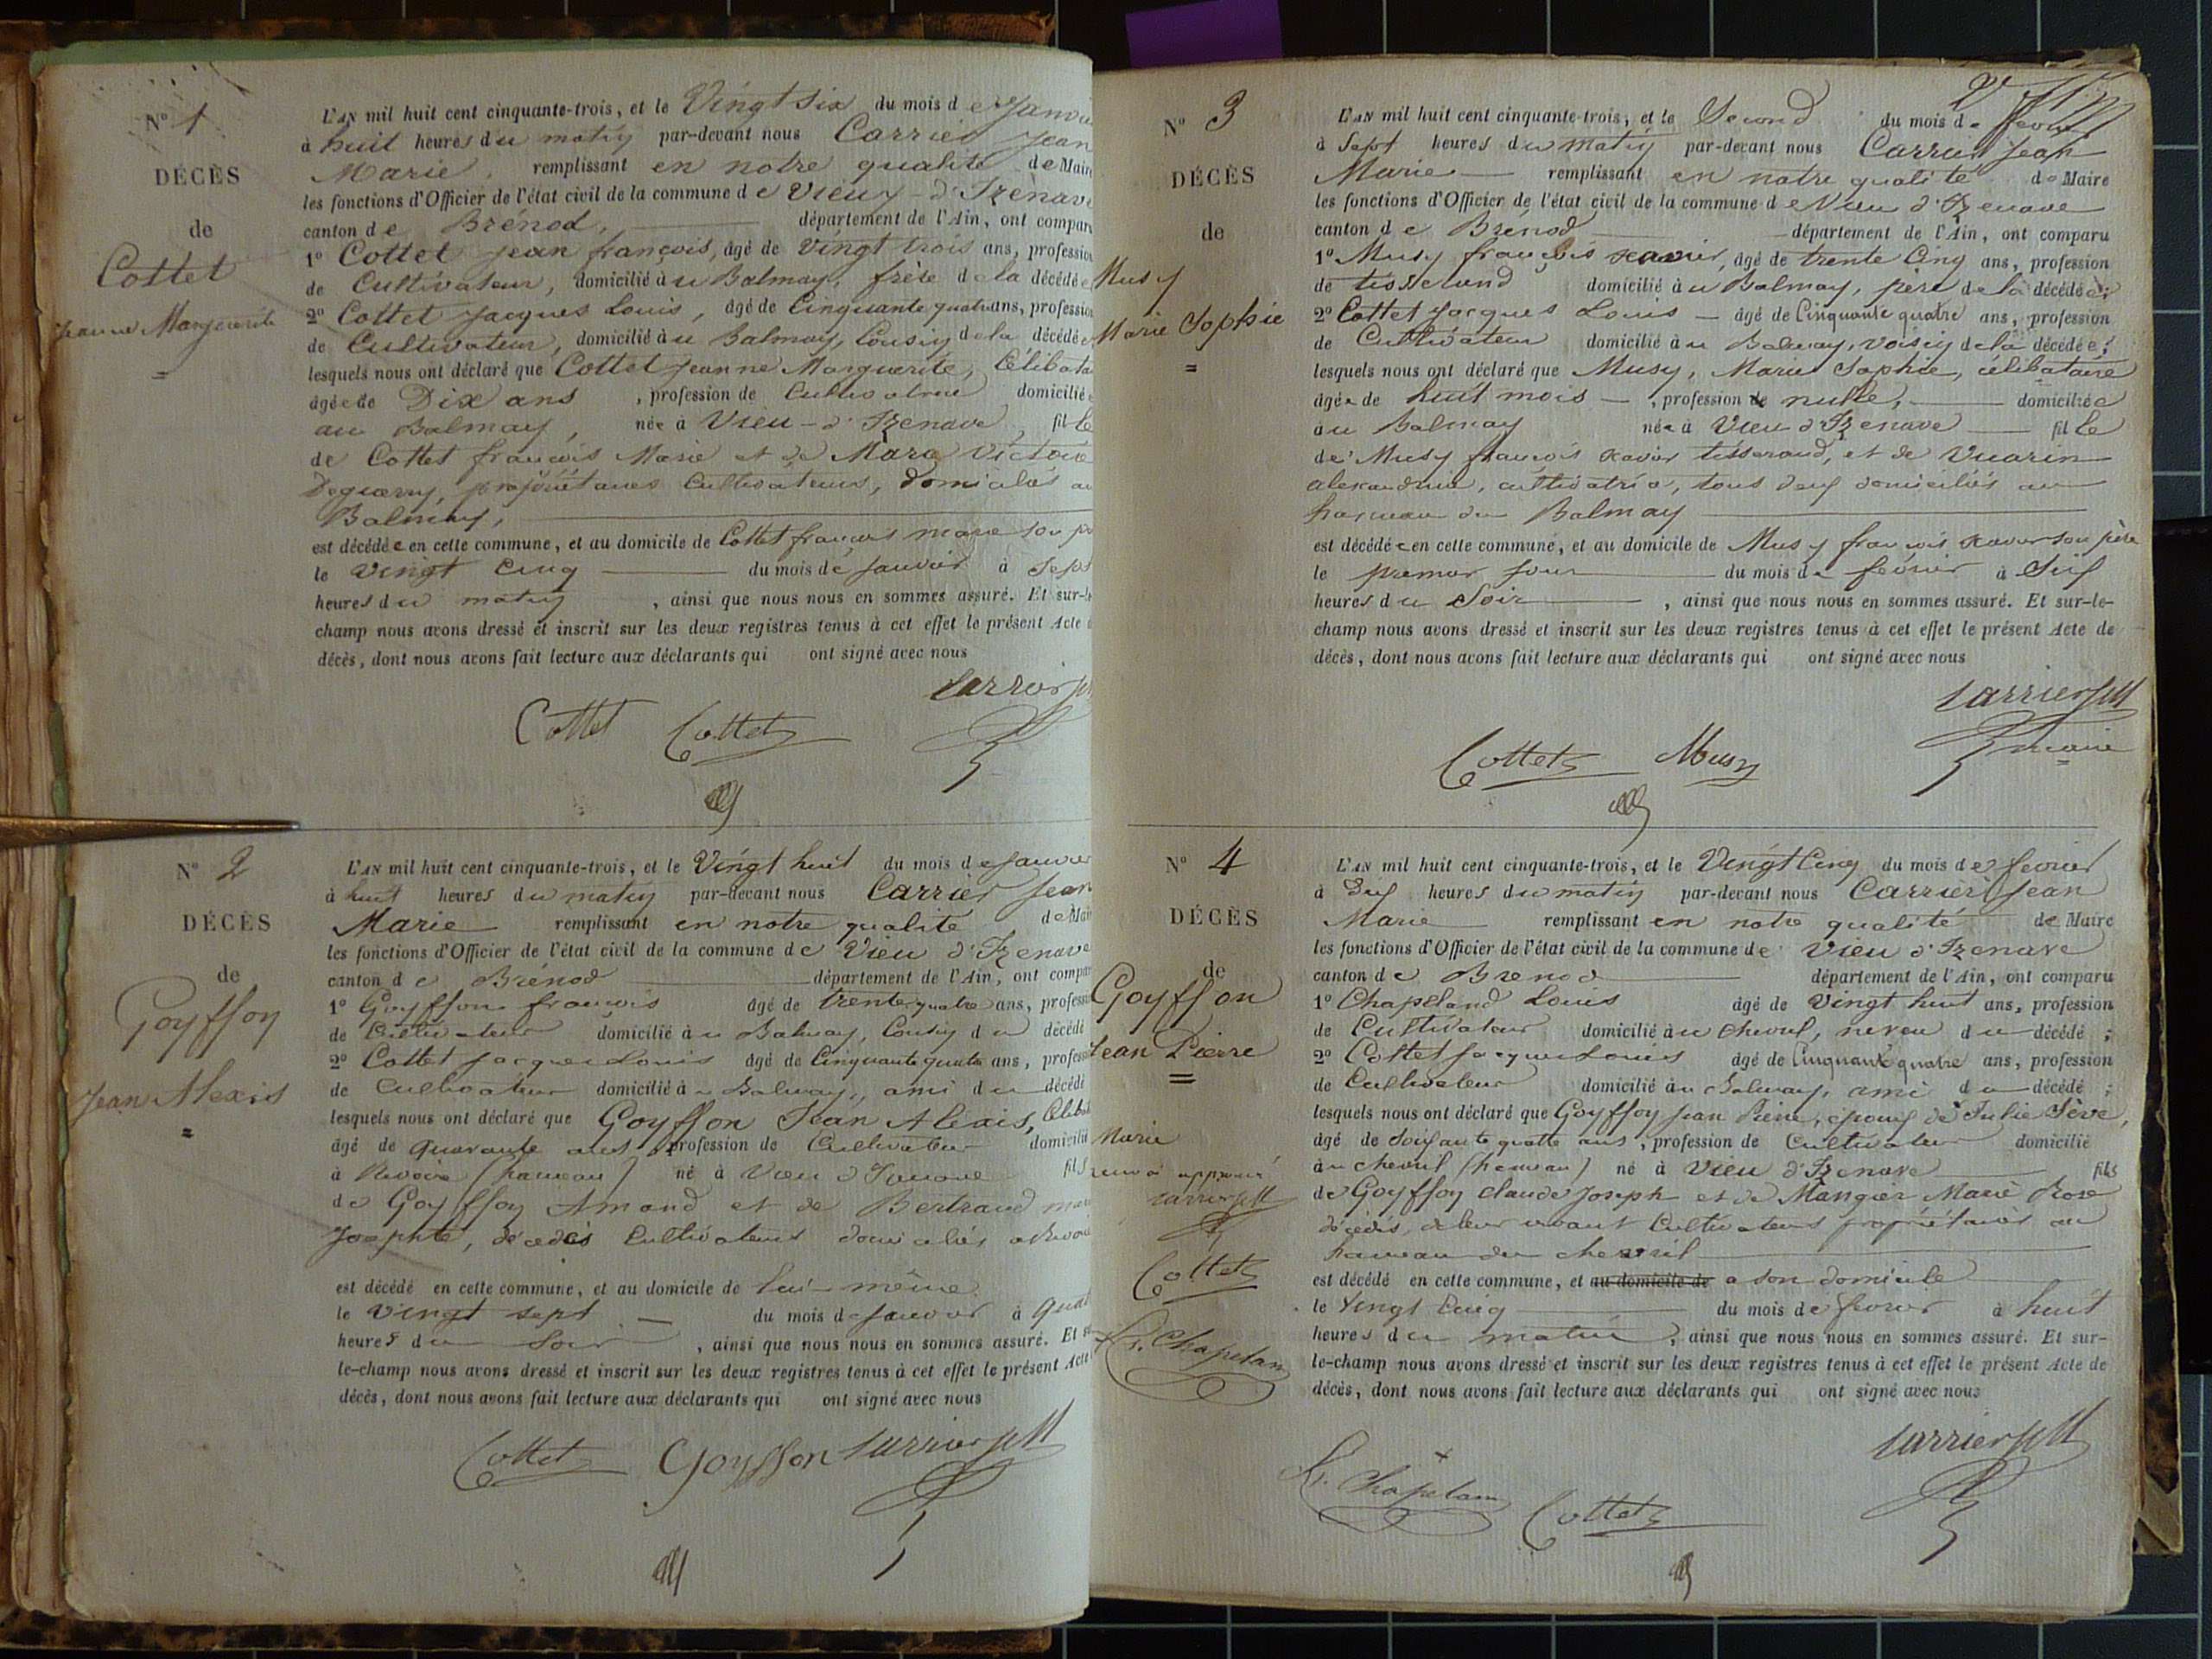 N° 1
DÉCÈS
de
Cottet
Jeanne Marguerite
L'AN mil huit cent cinquante-trois, et le Vingt six du mois de Janvi
à huit heures du matin par-devant nous Carrier Jean
Marie, remplissant en notre qualité de Maire
les fonctions d'Officier de l'état civil de la commune de Vieux-d'Izenave
canton de Brénod, département de l'Ain, ont compar
1° Cottet jean françois, âgé de Vingt trois ans, profession
de Cultivateur, domicilié au Balmay, frère de la décédée
2° Cottet Jacques Louis, âgé de Cinquante quatre ans, profession
de Cultivateur, domicilié au Balmay, Cousin de la décédée
lesquels nous ont déclaré que Cottet Jeanne Marguerite, Célibata
âgée de Dix ans, profession de Cultivatrice domiciliée
au Balmay, née à Vieu-d'Izenave, fille
de Cottet françois Marie et de Mara Victoire
propriétaires Cultivateurs, domiciliés au
Balmay,
est décédée en cette commune, et au domicile de Cottet françois marie son pè
le vingt Cinq du mois de janvier à Sept
heures du matin, ainsi que nous nous en sommes assuré. Et sur-le
champ nous avons dressé et inscrit sur les deux registres tenus à cet effet le présent Acte d
décès, dont nous avons fait lecture aux déclarants qui ont signé avec nous
Carrier JM
Cottet Cottet
N° 2
DÉCÈS
de
Goyffon
Jean Alexis
L'AN mil huit cent cinquante-trois, et le Vingt huit du mois de janvier
à huit heures du matin par-devant nous Carrier Jean
Marie remplissant en notre qualité de Mair
les fonctions d'Officier de l'état civil de la commune de Vieu d'Izenave
canton de Brénod département de l'Ain, ont compar
1° Goyffon françois âgé de trente quatre ans, profess
de Cultivateur domicilié au Balmay, Cousin du décédé
2° Cottet Jacques Louis âgé de Cinquante quatre ans, profess
de Cultivateur domicilié au Balmay, ami du décédé
lesquels nous ont déclaré que Goyffon Jean Alexis, Célibat
âgé de quarante ans, profession de Cultivateur domicilié
à (hameau) né à Vieu d'Izenave fils
de Goyffon Amand et de Bertrand mari
Josephte, décédés Cultivateurs domiciliés
est décédé en cette commune, et au domicile de Lui-même
le vingt sept du mois de janvier à quat
heures du Soir, ainsi que nous nous en sommes assuré. Et su
le-champ nous avons dressé et inscrit sur les deux registres tenus à cet effet le présent Acte
décès, dont nous avons fait lecture aux déclarants qui ont signé avec nous
Cottet Goyffon Carrier JM
N° 3
DÉCÈS
de
Musy
Marie Sophie
L'AN mil huit cent cinquante-trois, et le Second du mois de fevrier
à Sept heures du matin par-devant nous Carrier Jean
Marie remplissant en notre qualité de Maire
les fonctions d'Officier de l'état civil de la commune de Vieu d'Izenave
canton de Brénod département de l'Ain, ont comparu
1° Musy françois xavier, âgé de trente Cinq ans, profession
de tisserand domicilié au Balmay, père de la décédée;
2° Cottet Jacques Louis âgé de Cinquante quatre ans, profession
de Cultivateur domicilié au Balmay, voisin de la décédée;
lesquels nous ont déclaré que Musy, Marie Sophie, célibataire
âgée de huit mois, profession de nulle, domiciliée
au Balmay née à Vieu d'Izenave fille
de Musy françois xavier tisserand, et de Vuarin
alexandrine, cultivatrice, tous deux domiciliés au
hameau du Balmay
est décédée en cette commune, et au domicile de Musy françois xavier son père
le premier jour du mois de février à Six
heures du Soir, ainsi que nous nous en sommes assuré. Et sur-le-
champ nous avons dressé et inscrit sur les deux registres tenus à cet effet le présent Acte de
décès, dont nous avons fait lecture aux déclarants qui ont signé avec nous
Carrier JM
Cottet Musy maire
N° 4
DÉCÈS
de
Goyffon
Jean Pierre
Marie
renvoi approuvé
Carrier JM
Cottet
L. Chapelan
L'AN mil huit cent cinquante-trois, et le Vingt Cinq du mois de fevrier
à Dix heures du matin par-devant nous Carrier Jean
Marie remplissant en notre qualité de Maire
les fonctions d'Officier de l'état civil de la commune de Vieu d'Izenave
canton de Brenod département de l'Ain, ont comparu
1° Chapeland Louis âgé de Vingt huit ans, profession
de Cultivateur domicilié au chevril, neveu du décédé;
2° Cottet Jacques Louis âgé de Cinquante quatre ans, profession
de Cultivateur domicilié au Balmay, ami du décédé;
lesquels nous ont déclaré que Goyffon Jean Pierre, époux de Julie Sève,
âgé de Soixante quatre ans, profession de Cultivateur domicilié
au chevril (hameau) né à Vieu d'Izenave fils
de Goyffon Claude Joseph et de Mangier Marie Rose
décédés, de leur vivant Cultivateurs propriétaires au
hameau du chevril
est décédé en cette commune, et au domicile de a son domicile
le Vingt Cinq du mois de fevrier à huit
heures du matin, ainsi que nous nous en sommes assuré. Et sur-
le-champ nous avons dressé et inscrit sur les deux registres tenus à cet effet le présent Acte de
décès, dont nous avons fait lecture aux déclarants qui ont signé avec nous
Carrier JM
L. Chapelan Cottet